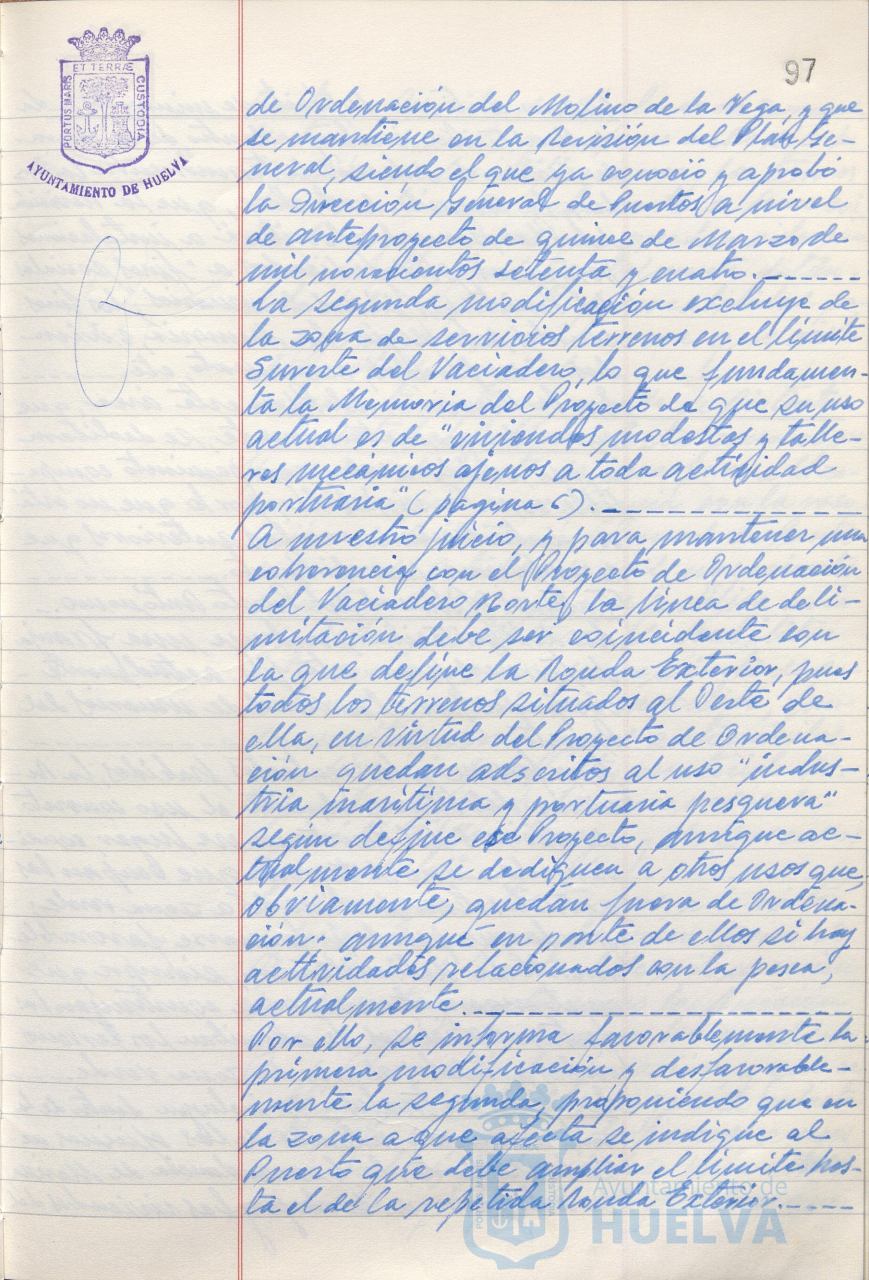 97
ET TERRÆ
PORTUS MARIS
CUSTODIA
AYUNTAMIENTO DE HUELVA
de Ordenación del Molino de la Vega, y que
se mantiene en la Revisión del Plan Ge-
neral, siendo el que ya conoció y aprobó
la Dirección General de Puertos a nivel
de anteproyecto de quince de Marzo de
mil novecientos setenta y cuatro.------
La segunda modificación excluye de
la zona de servicios terrenos en el límite
Sureste del Vaciadero, lo que fundamen-
ta la Memoria del Proyecto de que su uso
actual es de "viviendas modestas y talle-
res mecánicos ajenos a toda actividad
portuaria" (página 6).------------
A nuestro juicio, y para mantener una
coherencia con el Proyecto de Ordenación
del Vaciadero Norte, la línea de deli-
mitación debe ser coincidente con
la que define la Ronda Exterior, pues
todos los terrenos situados al Oeste de
ella, en virtud del Proyecto de Ordena-
ción quedan adscritos al uso "indus-
tria marítima y portuaria pesquera"
según define ese Proyecto, aunque ac-
tualmente se dediquen a otros usos que,
obviamente, quedan fuera de Ordena-
ción. aunque en parte de ellos si hay
actividades relacionados con la pesca,
actualmente.--------------------
Por ello, se informa favorablemente la
primera modificación y desfavorable-
mente la segunda, proponiendo que en
la zona a que afecta se indique al
Puerto que debe ampliar el límite has-
ta el de la repetida Ronda Exterior.-----
Ayuntamiento de
HUELVA